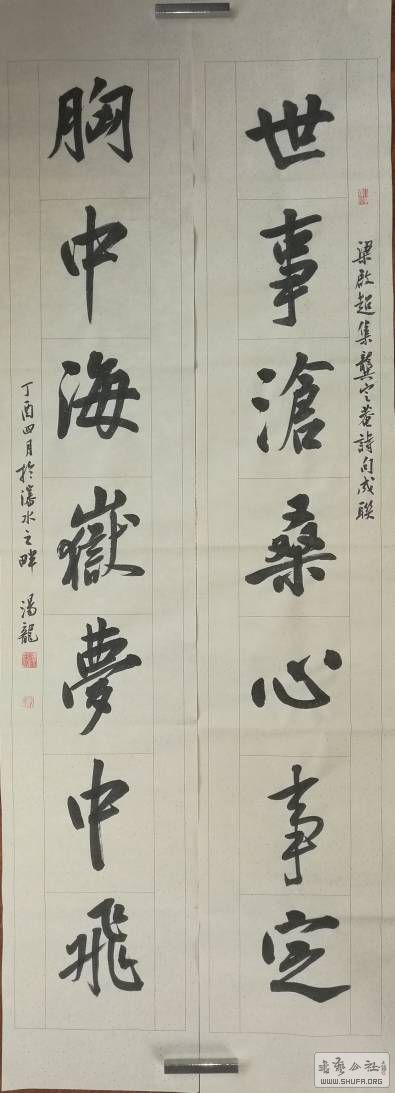 梁啟超集龔定菴詩句成聯
世事滄桑心事定
胸中海嶽夢中飛
丁酉四月於瀋水之畔 湯龍
书艺公社
WWW.SHUFA.ORG